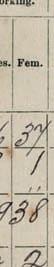 orking.
es. Fem.
37
1
" 
938
2